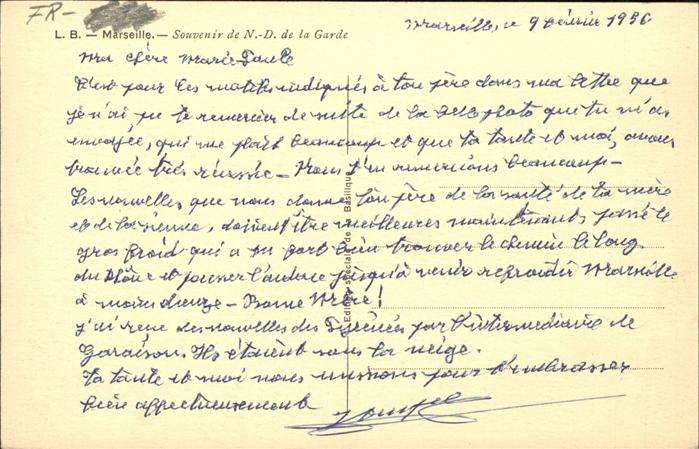 FR-
Marseille, le 9 Février 1956
L. B. — Marseille. — Souvenir de N.-D. de la Garde
Ma chère Marie Paule
C'est pour les motifs indiqués à ton père dans ma lettre que
je n'ai pu te remercier de suite de la belle photo que tu m'as
envoyée, qui me plait beaucoup et que ta tante et moi, avons
trouvée très réussie – Nous t'en remercions beaucoup –
Les nouvelles que nous donne ton père de la santé de ta mère
et de la sienne, doivent être meilleures maintenant, passé le
gros froid qui a su fort bien trouver le chemin le long
du Rhône et pousser l'audace jusqu'à venir refroidir Marseille
à moins douze – Bonne Mère!
j'ai reçu des nouvelles des Pyrénées par l'intermédiaire de
Garaison. Ils étaient sous la neige.
Ta tante et moi nous unissons pour t'embrasser
bien affectueusement
Edition spéciale de la Basilique